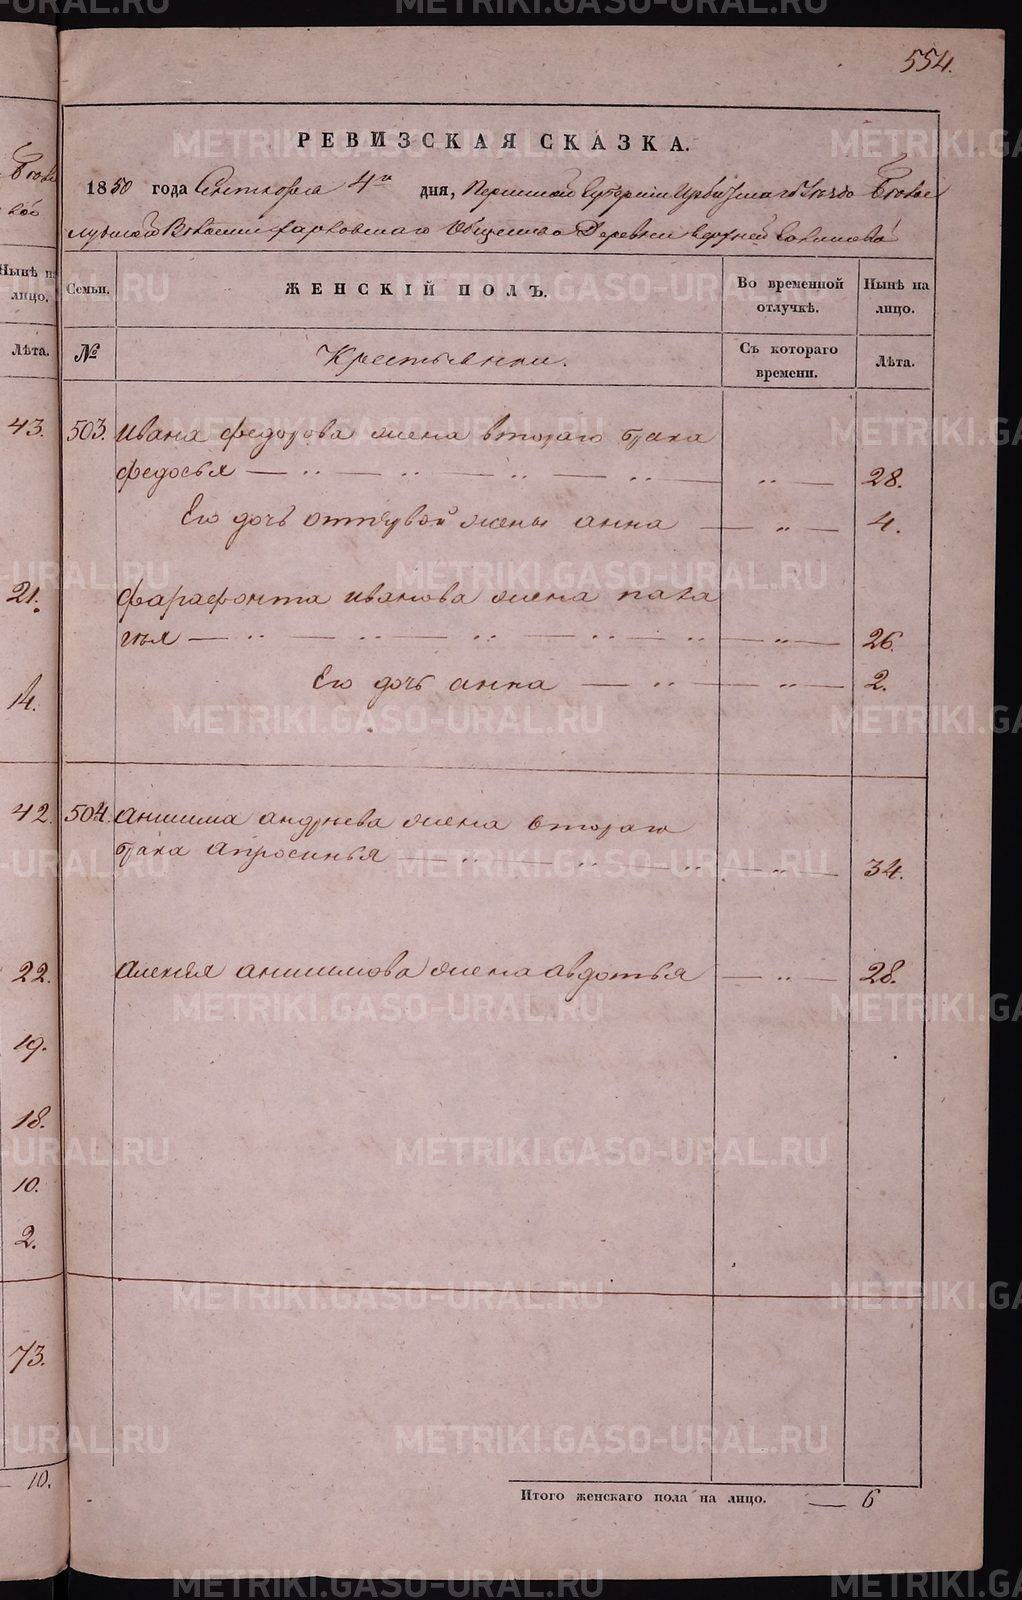 554.
РЕВИЗСКАЯ СКАЗКА.
1850 года Сентября 4го дня, Пермской Губернии Ирбитскаго Уезда Белосле
лудской Волости Харловскаго Общества Деревни верхней
Нынѣ на лицо.
Семьи.
ЖЕНСКІЙ ПОЛЪ.
Во временной отлучкѣ.
Нынѣ на лицо.
Лѣта.
№
Крестьянки.
Съ котораго времени.
Лѣта.
43. 503. ивана федорова жена втораго брака
федосья — „ — 28.
Его дочь от первой жены анна — „ — 4.
21. фарафонта иванова жена пала
гѣя — „ — 26.
Его дочь анна — „ — 2.
42. 504. анисима андреева жена втораго
брака апросинья — „ — 34.
22. алексѣя анисимова жена авдотья — „ — 28.
19.
18.
10.
2.
73.
10.
Итого женскаго пола на лицо. — 6
METRIKI.GASO-URAL.RU